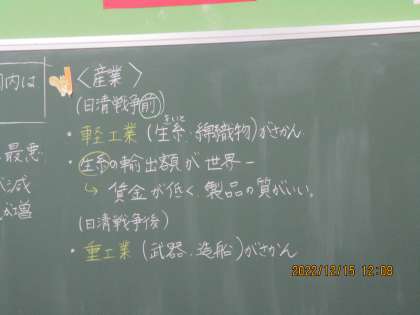 内は
最悪
減
増
〈産業〉
(日清戦争前)
・軽工業(生糸、綿織物)がさかん
きいと
・生糸の輸出額が世界一
↳ 賃金が低く、製品の質がいい。
(日清戦争後)
・重工業(武器、造船)がさかん
2022/12/15 12:09